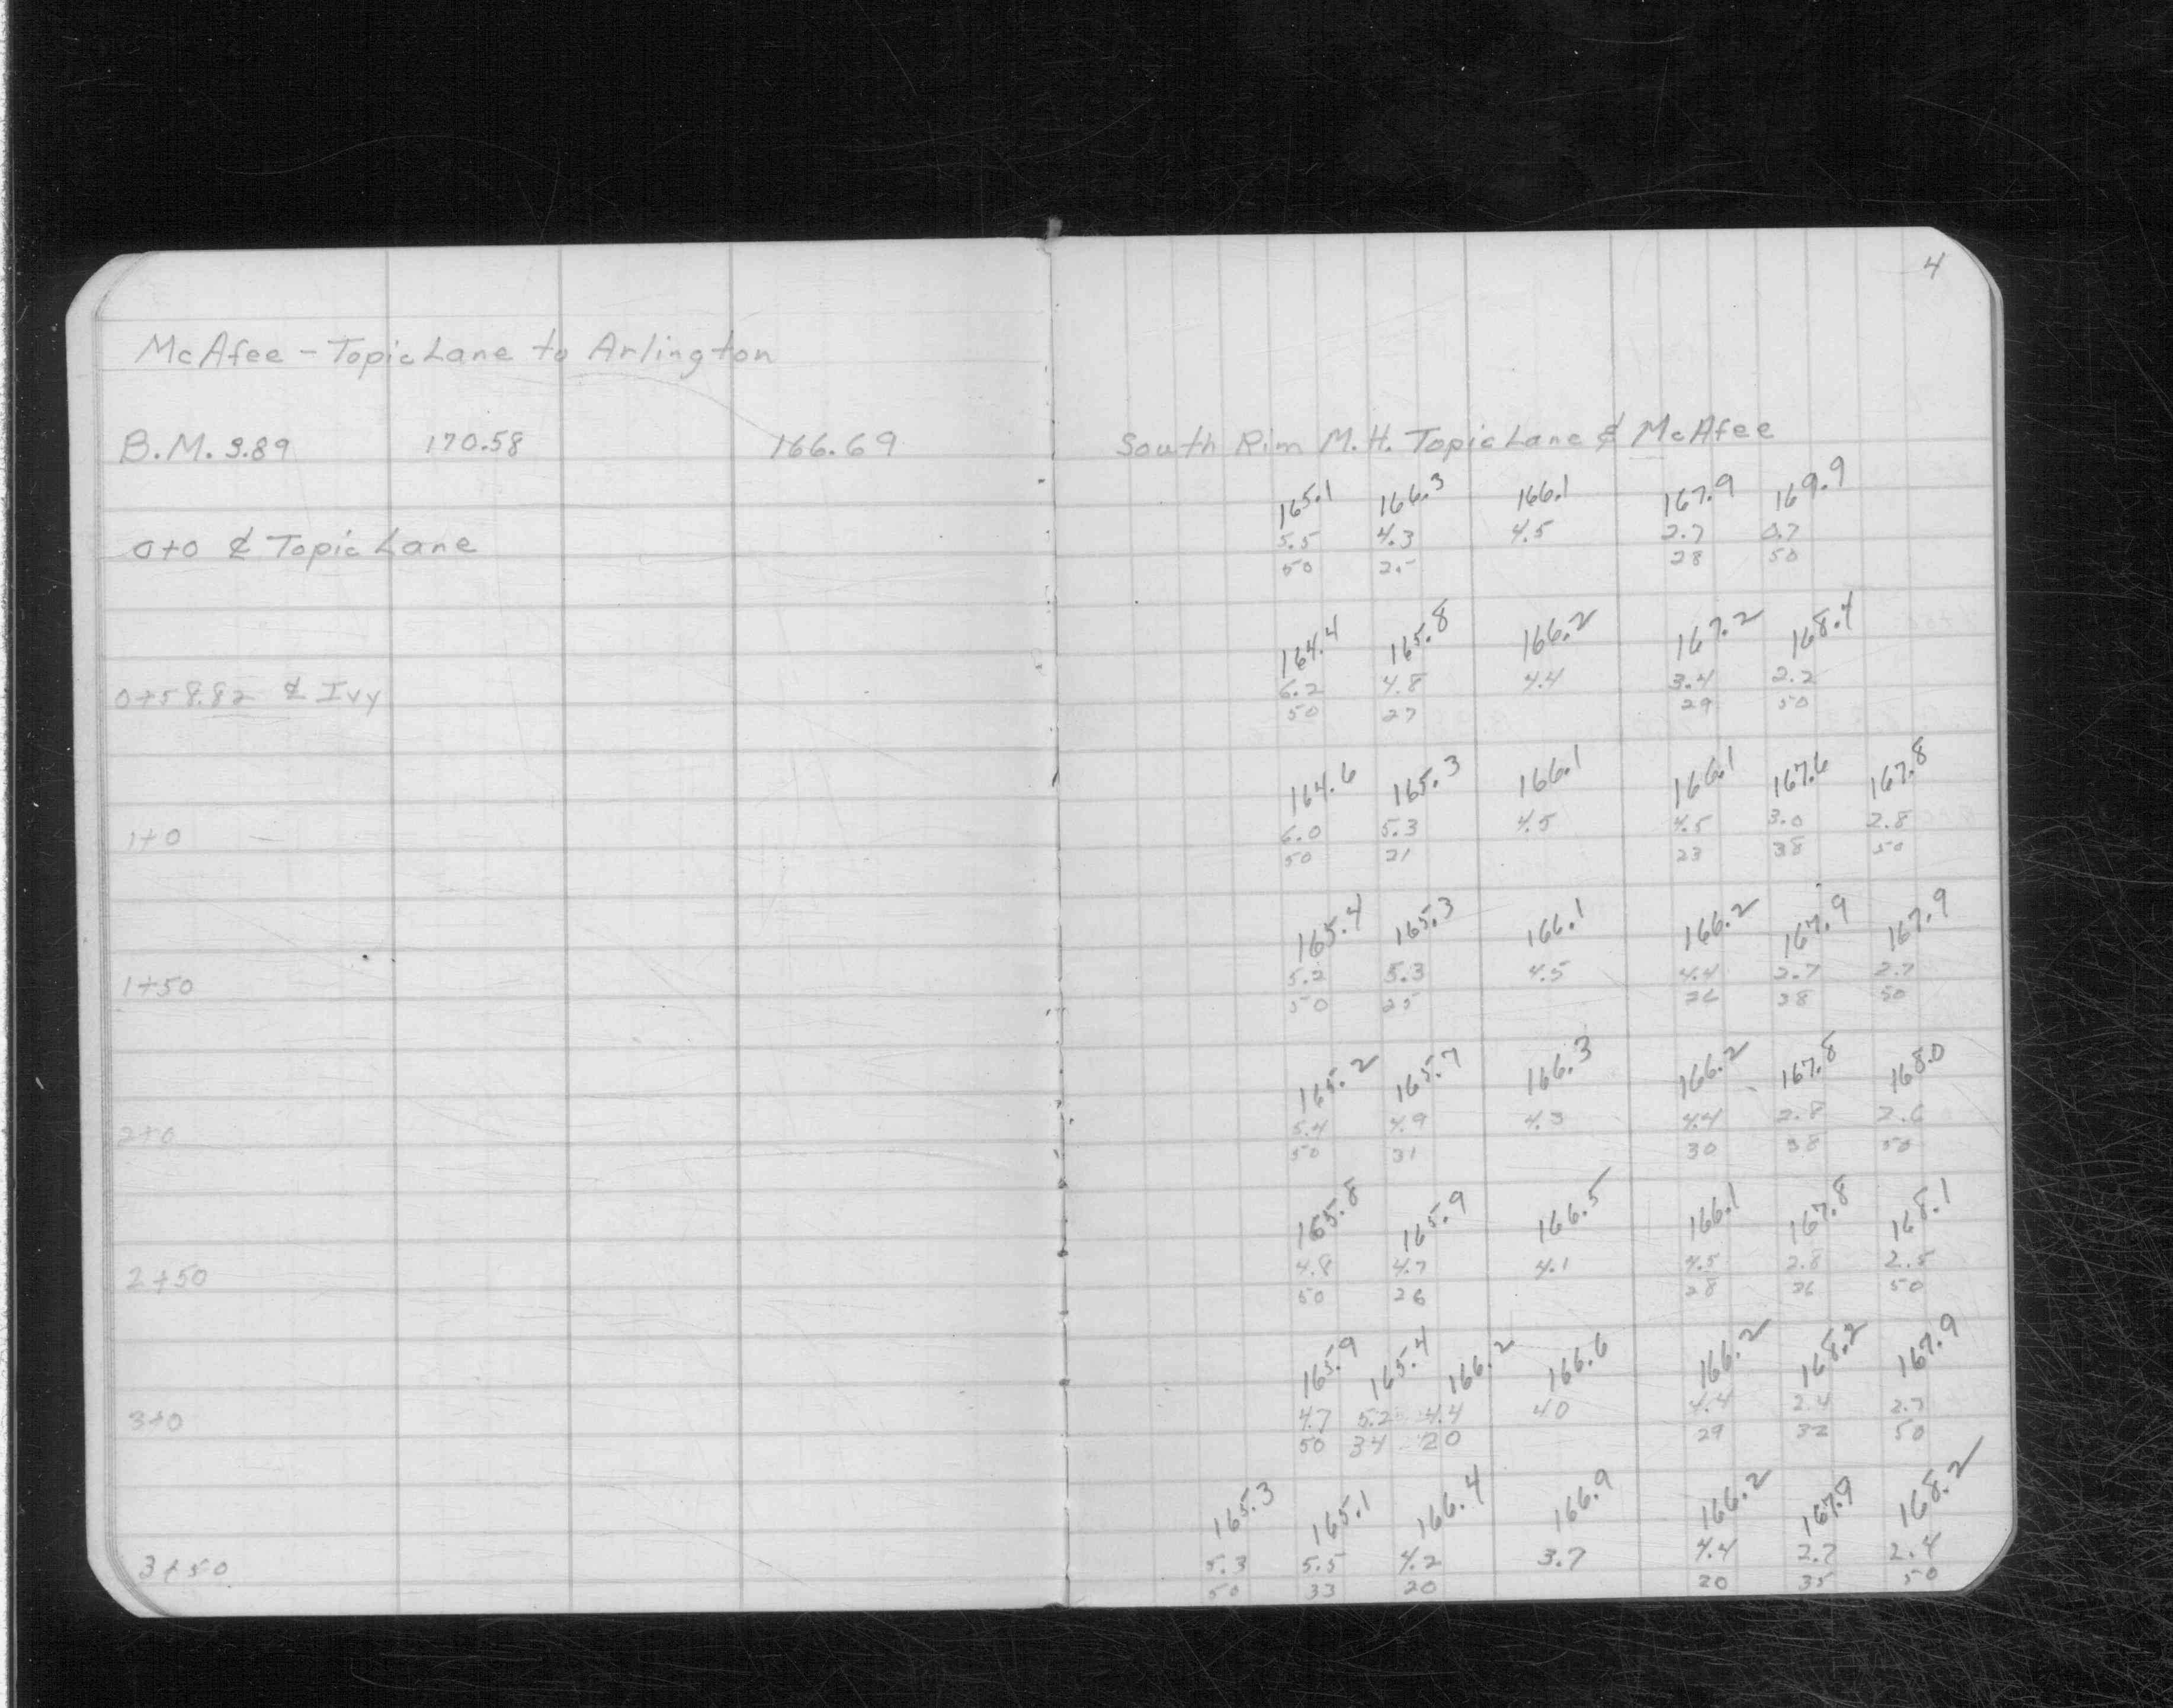 4
McAfee - Topic Lane to Arlington
B.M. 3.89 170.58 166.69 South Rim M.H. Topic Lane & McAfee
165.1 166.3 166.1 167.9 169.9
0+0 ℄ Topic Lane 5.5 4.3 4.5 2.7 0.7
50 28 50
164.4 165.8 166.2 167.2 168.4
0+58.82 ℄ Ivy 6.2 4.8 4.4 3.4 2.2
50 27 29 50
164.6 165.3 166.1 166.1 167.6 167.8
1+0 6.0 5.3 4.5 4.5 3.0 2.8
50 21 23 38 50
165.4 165.3 166.1 166.2 167.9 167.9
1+50 5.2 5.3 4.5 4.4 2.7 2.7
50 25 26 38 50
165.2 165.7 166.3 166.2 167.8 168.0
2+0 5.4 4.9 4.3 4.4 2.8 2.6
50 31 30 38 50
165.8 165.9 166.5 166.1 167.8 168.1
2+50 4.8 4.7 4.1 4.5 2.8 2.5
50 26 28 36 50
165.9 165.4 166.2 166.6 166.2 168.2 167.9
3+0 4.7 5.2 4.4 4.0 4.4 2.4 2.7
50 34 20 29 32 50
165.3 165.1 166.4 166.9 166.2 167.9 168.2
3+50 5.3 5.5 4.2 3.7 4.4 2.7 2.4
50 33 20 20 35 50